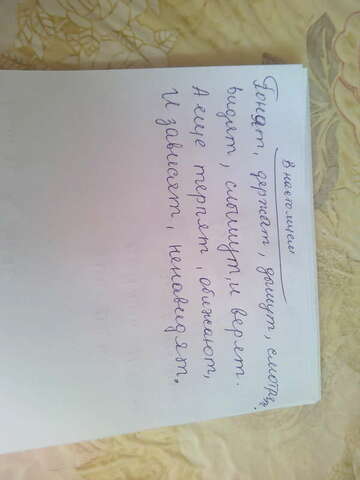 В настоящем
Гонят, держат, дышут, смотрят,
видят, слышут, и верят.
А еще терпят, обжают,
И зависят, ненавидят.